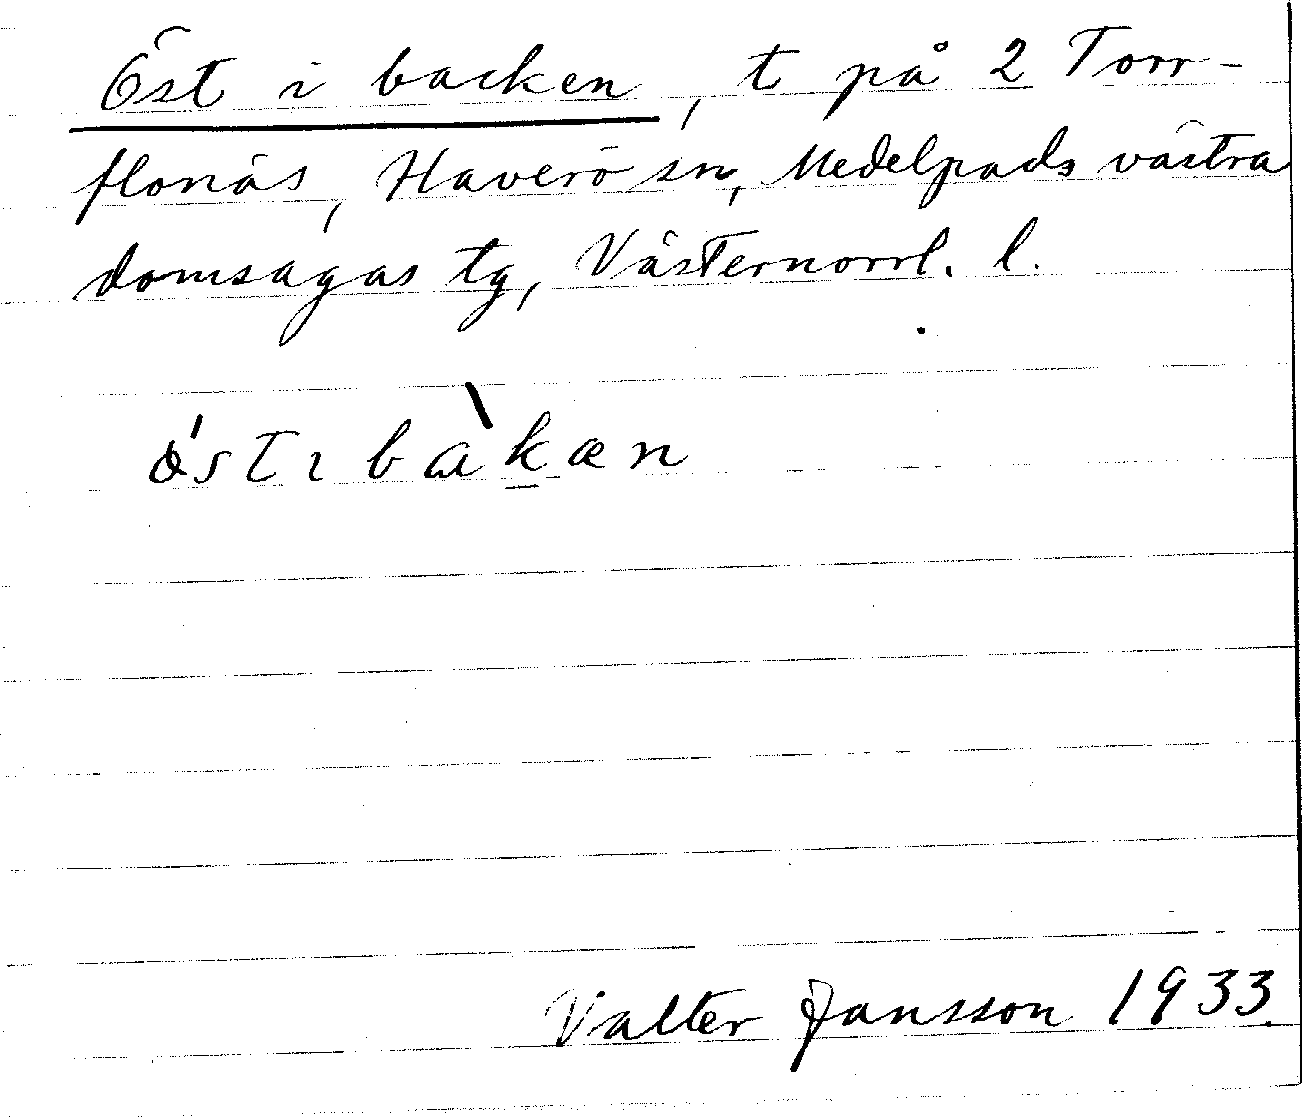 Öst i backen, t på 2 Torr-
flonäs, Haverö sn, Medelpads västra
domsagas tg, Västernorrl. l.
ö́stıbàkæn
Valter Jansson 1933.